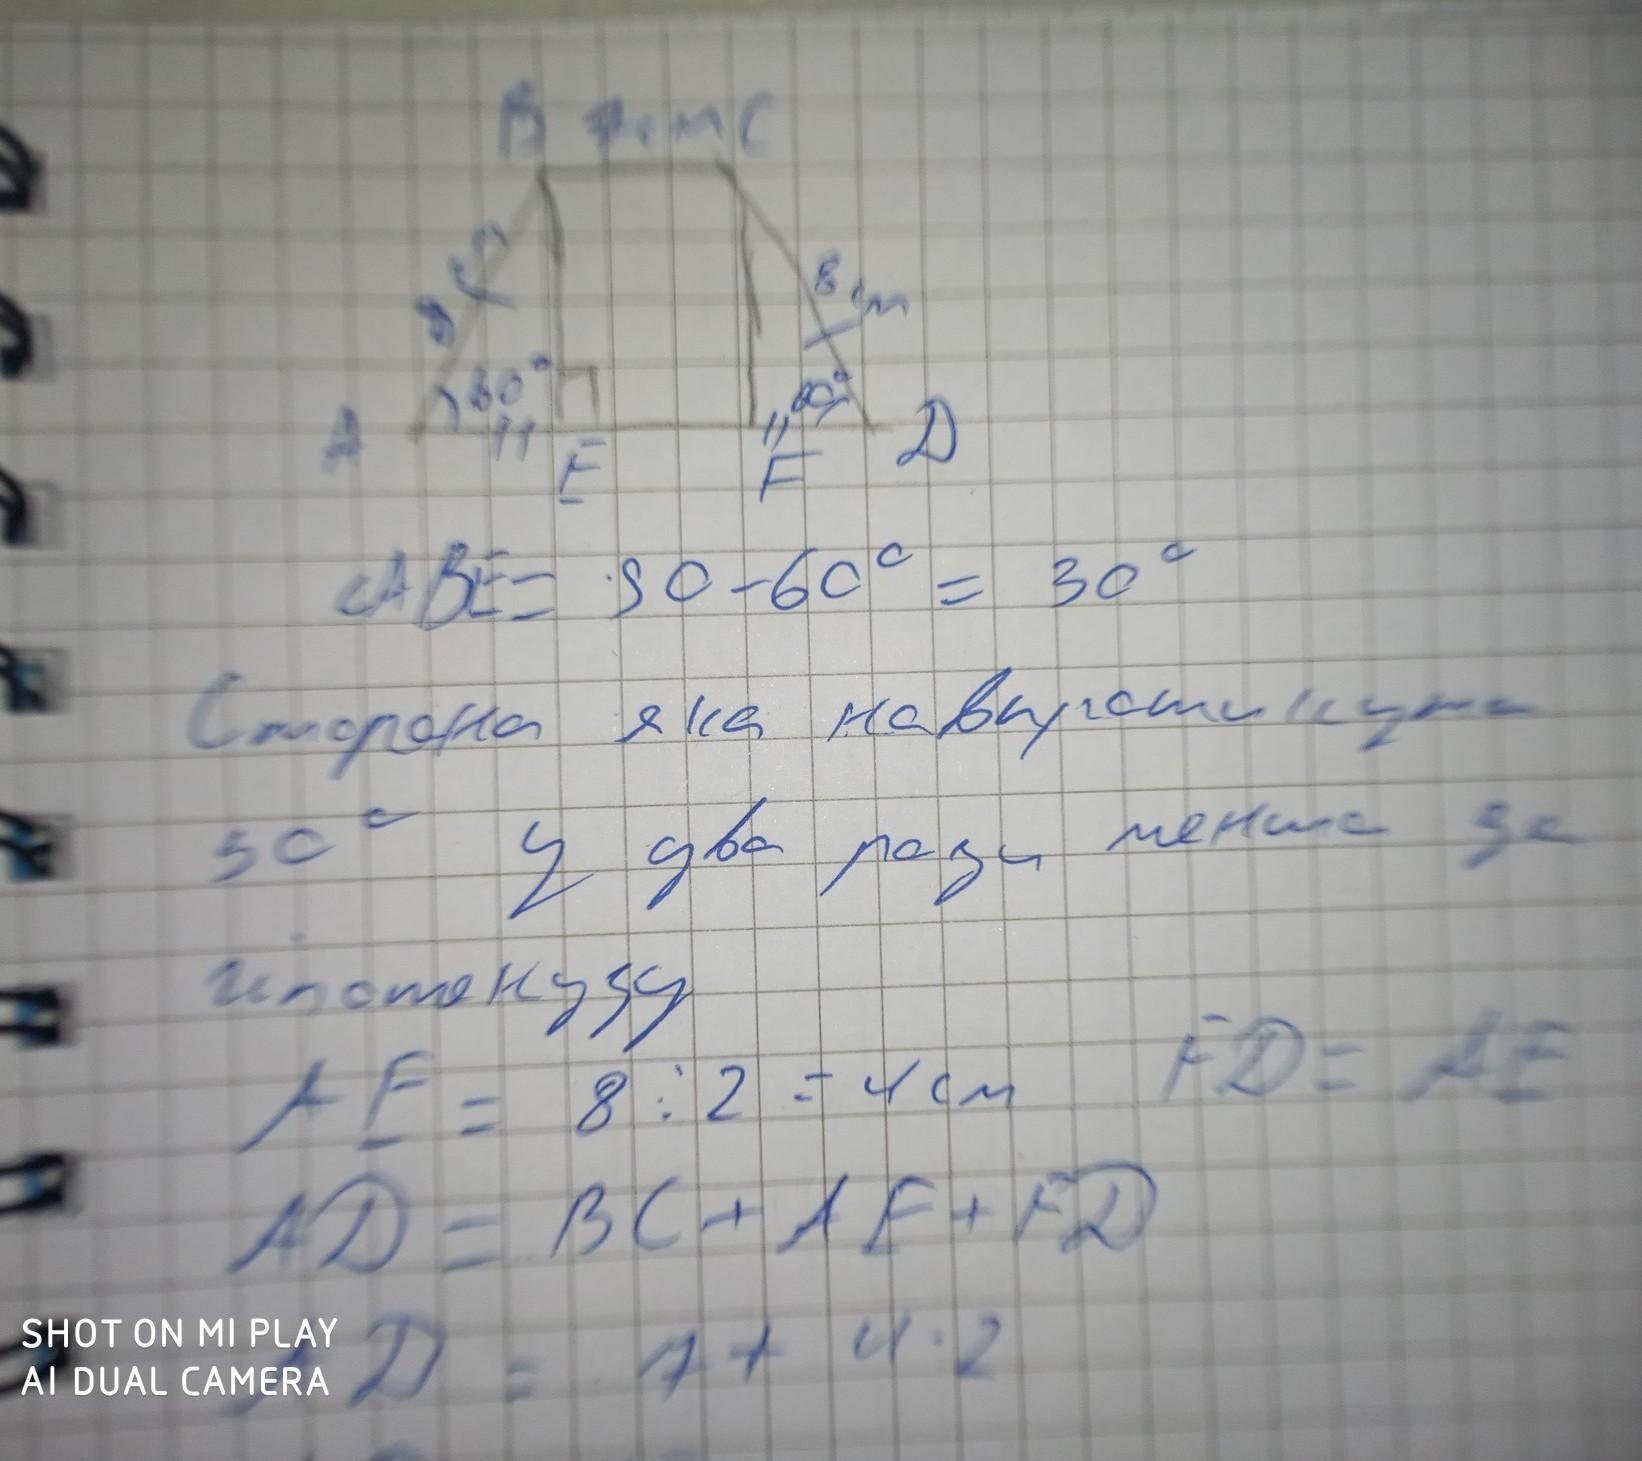 B 7 cm C
8 см
8 см
60°
60°
A
E
F
D
<ABE = 90-60° = 30°
Сторона яка навпроти кута
30° у два рази менша за
гіпотенузу
AE = 8 : 2 = 4 см FD = AE
AD = BC + AE + FD
AD = 7 + 4 · 2
SHOT ON MI PLAY
AI DUAL CAMERA